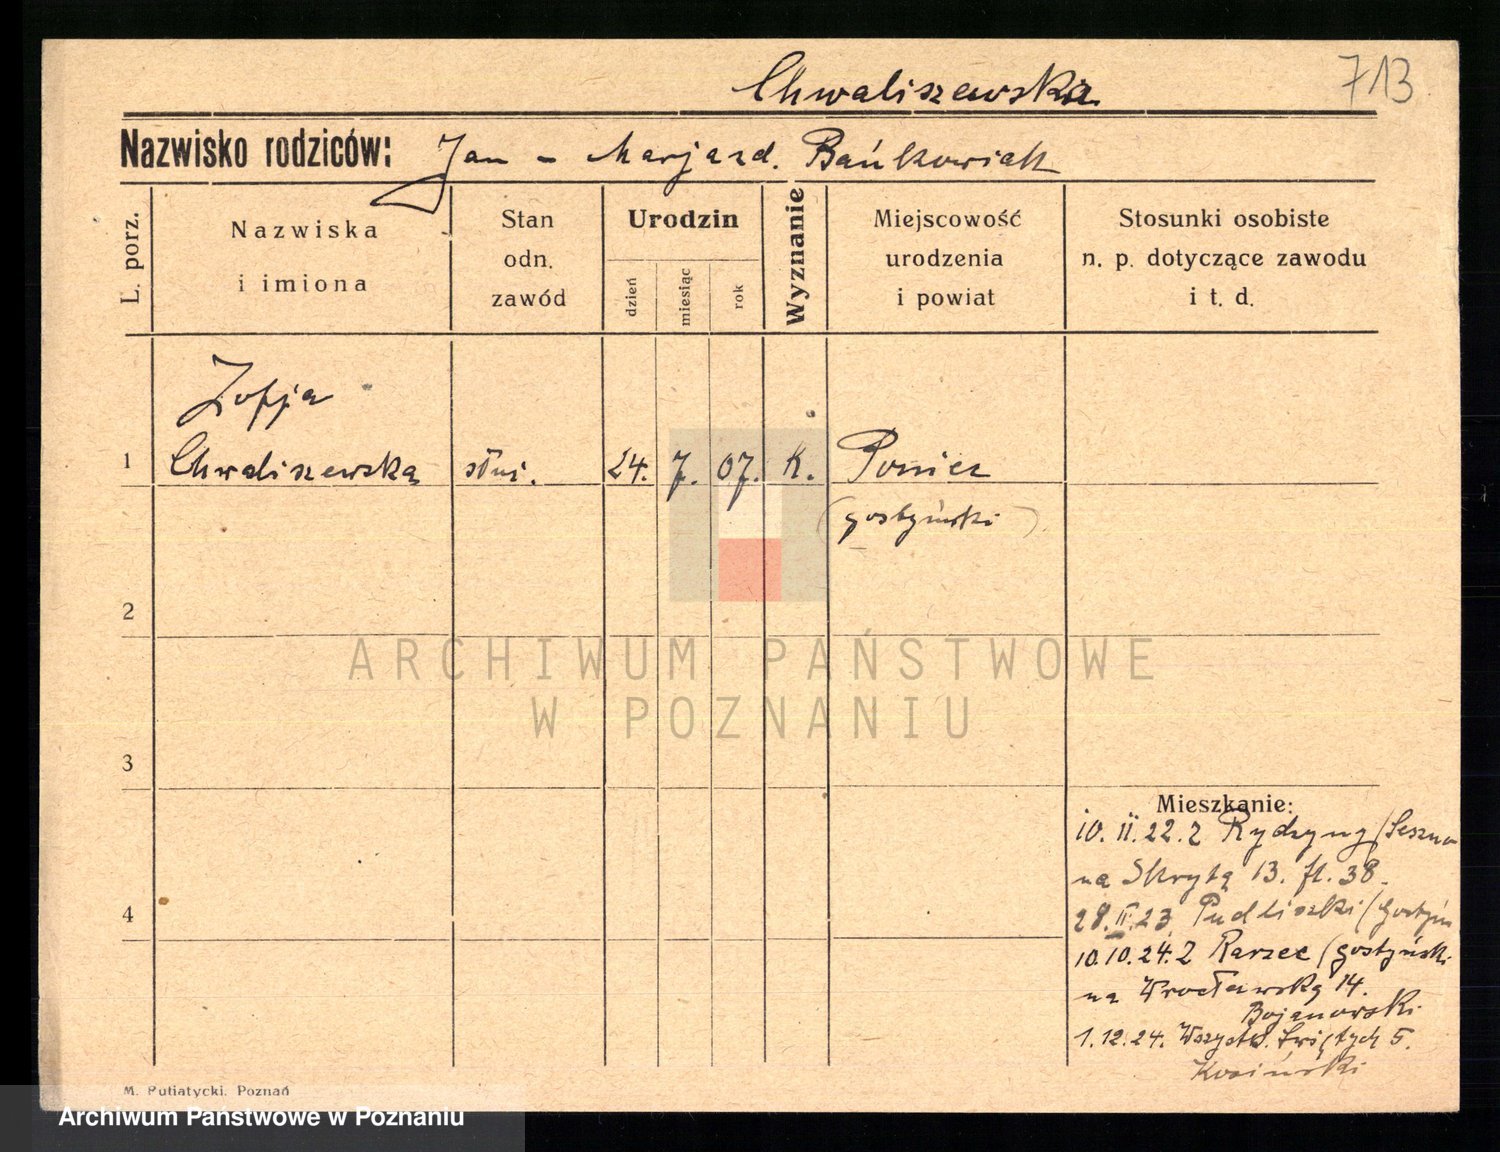 Chwaliszewska
713
Nazwisko rodziców: Jan - Marja zd. Bańkowiak
L. porz.
Nazwiska
i imiona
Stan
odn.
zawód
Urodzin
dzień
miesiąc
rok
Wyznanie
Miejscowość
urodzenia
i powiat
Stosunki osobiste
n. p. dotyczące zawodu
i t. d.
Zofja
1 Chwaliszewska służ. 24. 7. 07. K. Poniec
(gostyński)
2
3
4
ARCHIWUM PAŃSTWOWE
W POZNANIU
Mieszkanie:
10. II. 22. z Rydzyny/Leszno
na Skrytą 13. fl. 38.
28. II. 23 Pudliszki/Gostyń
10.10.24. z Karzec (gostyński
na Wrocławską 14.
Bojanowski
1.12.24. Wszystk. Świętych 5.
Kosiński
M. Putiatycki, Poznań
Archiwum Państwowe w Poznaniu